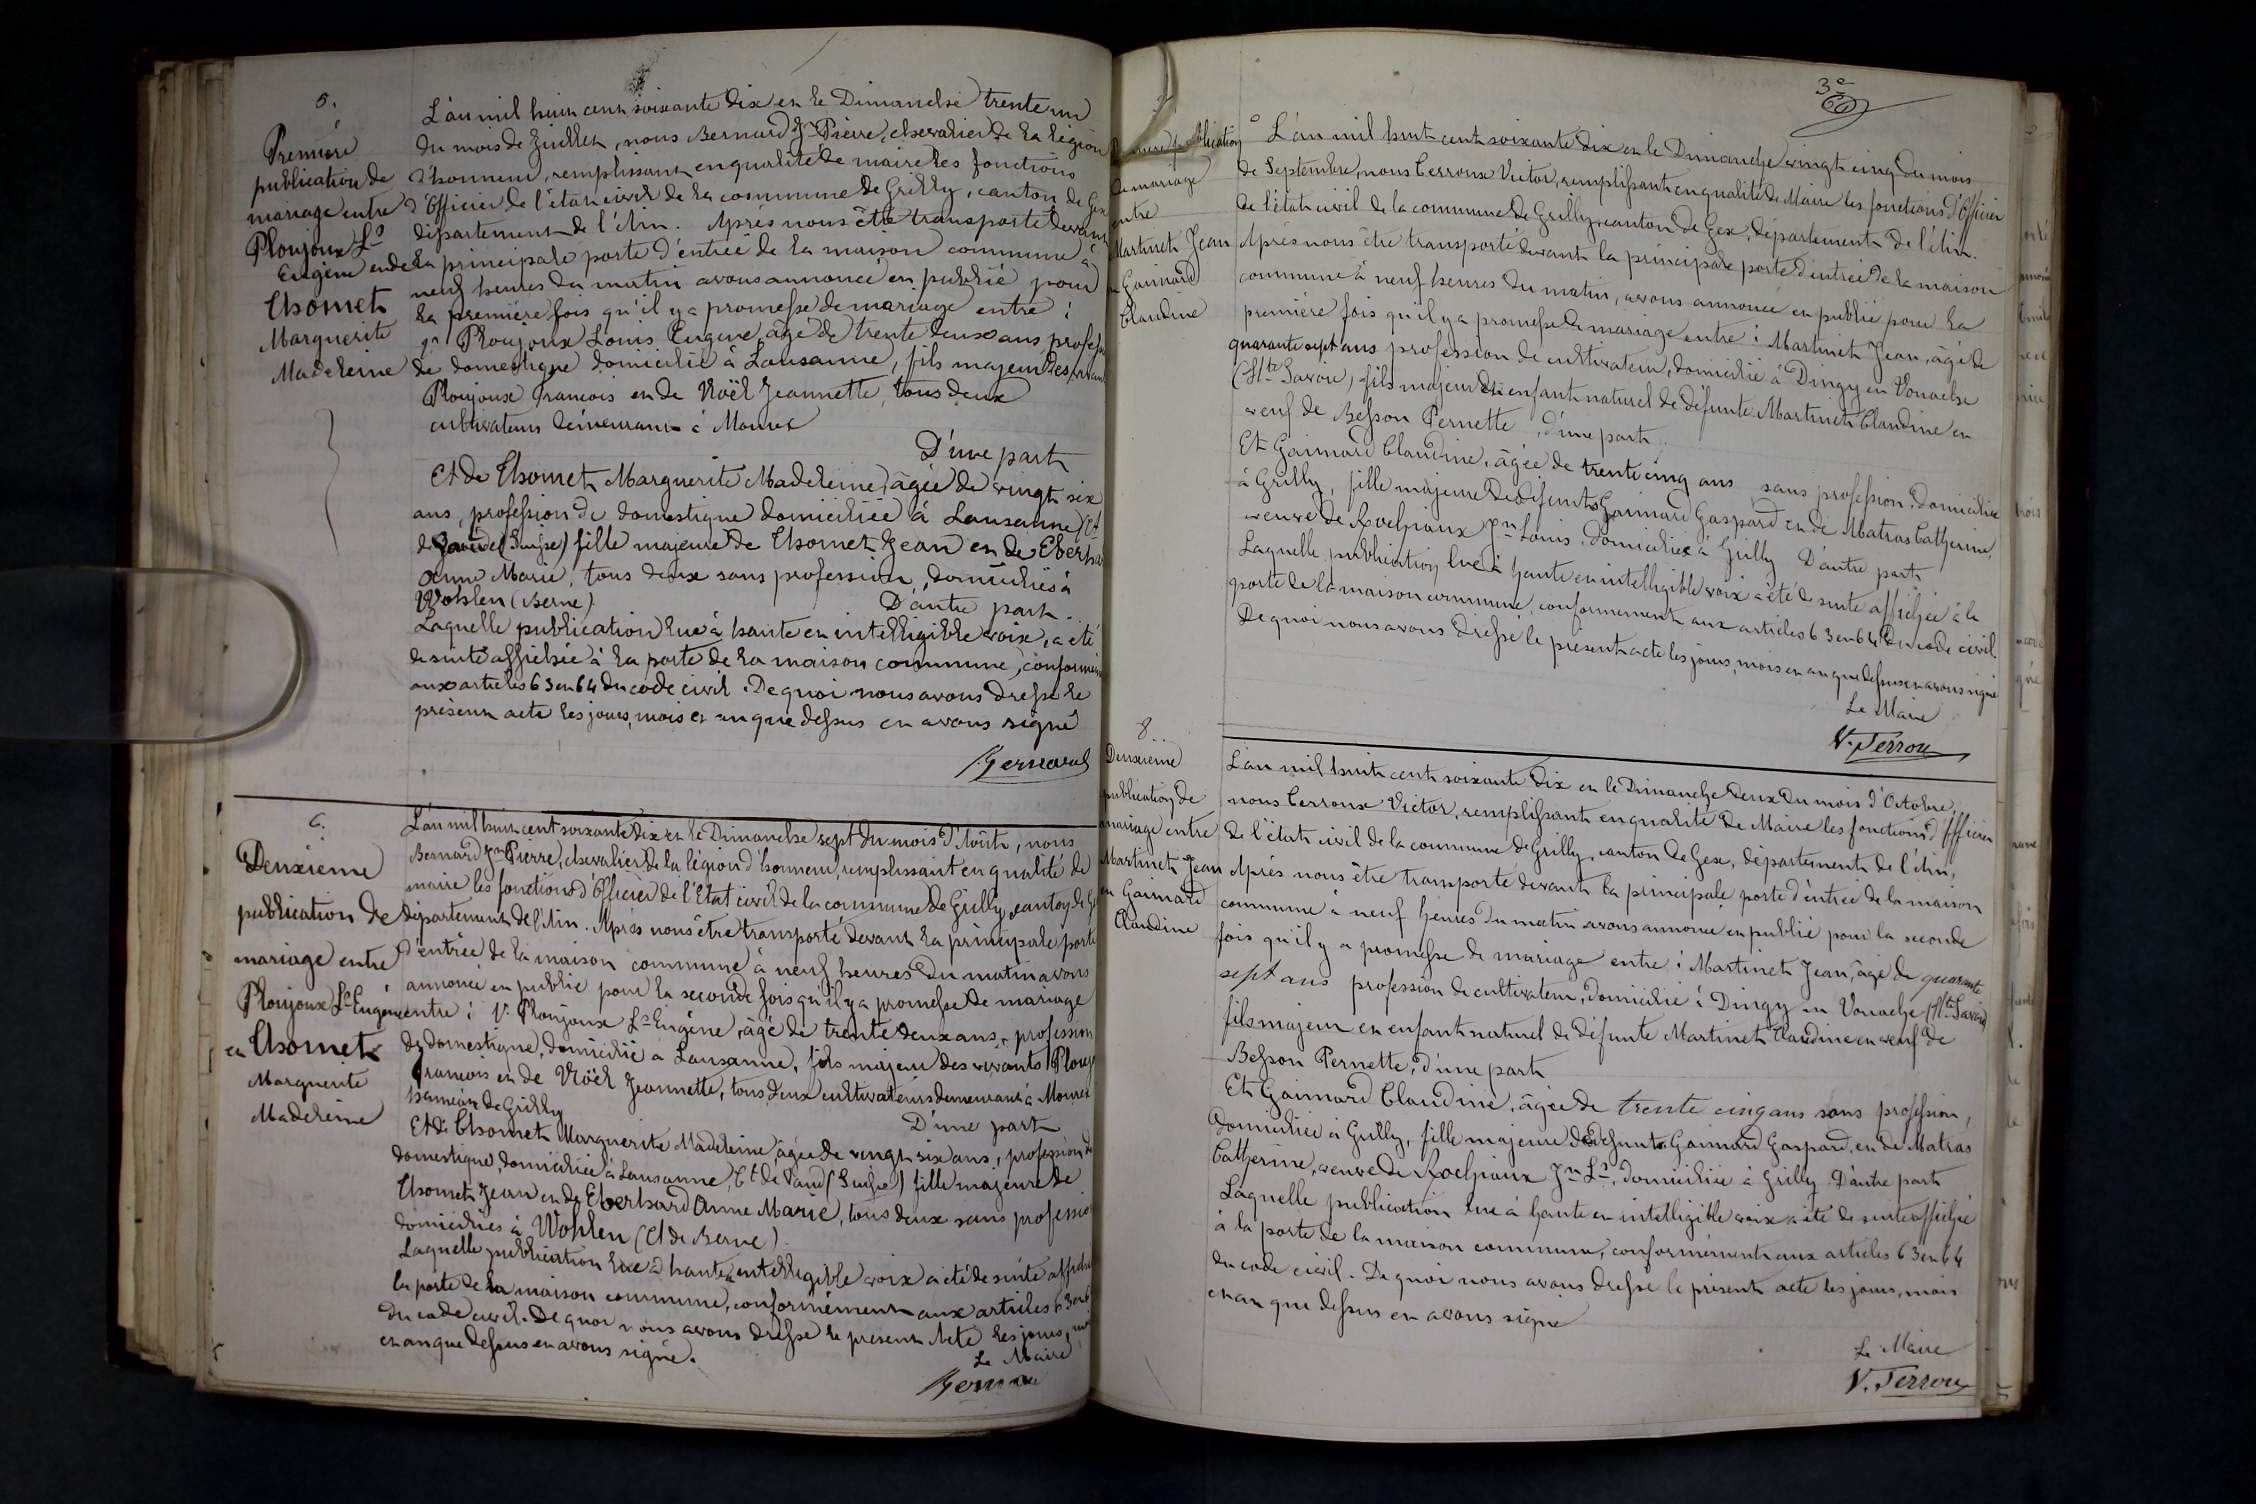 5.
Première
publication de
mariage entre
Ploujoux Ls
Eugène et de
Thomet
Marguerite
Madeleine
L'an mil huit cent soixante dix et le Dimanche trente un
du mois de Juillet, nous Bernard Jn Pierre, chevalier de la légion
d'honneur, remplissant en qualité de maire les fonctions
d'Officier de l'état civil de la commune de Grilly, canton de Gex
département de l'Ain. Après nous être transporté devant
la principale porte d'entrée de la maison commune à
neuf heures du matin avons annoncé en publié pour
la première fois qu'il y a promesse de mariage entre :
1º Ploujoux Louis Eugène, âgé de trente deux ans, profess
de domestique domicilié à Lausanne, fils majeur des vivants
Ploujoux François et de Noël Jeannette, tous deux
cultivateurs demeurant à Mourex
D'une part
Et de Thomet Marguerite Madeleine, âgée de vingt six
ans, profession de domestique domiciliée à Lausanne (Ct
de Vaud (Suisse) fille majeure de Thomet Jean et de Eberhar
Anne Marie, tous deux sans profession, domiciliés à
Wohlen (Berne).
D'autre part.
Laquelle publication lue à haute et intelligible voix, a été
de suite affichée à la porte de la maison commune, conformém
aux articles 63 et 64 du code civil. De quoi nous avons dressé le
présent acte les jours, mois et an que dessus et avons signé
Bernard
6.
Deuxième
publication de
mariage entre
Ploujoux Ls Eugène
et Thomet
Marguerite
Madeleine
L'an mil huit cent soixante dix et le Dimanche sept du mois d'Août, nous
Bernard Jn Pierre, chevalier de la légion d'honneur, remplissant en qualité de
maire les fonctions d'Officier de l'Etat civil de la commune de Grilly, canton de G
département de l'Ain. Après nous être transporté devant la principale porte
d'entrée de la maison commune à neuf heures du matin avons
annoncé en public pour la seconde fois qu'il y a promesse de mariage
entre : 1º Ploujoux Ls Eugène, âgé de trente deux ans, profession
de domestique, domicilié à Lausanne, fils majeur des vivants Plouj
François et de Noël Jeannette, tous deux cultivateurs demeurant à Mourex
hameau de Grilly
D'une part
Et de Thomet Marguerite Madeleine, âgée de vingt six ans, profession de
domestique, domiciliée à Lausanne, Ct de Vaud (Suisse) fille majeure de
Thomet Jean et de Eberhard Anne Marie, tous deux sans professio
domiciliés à Wohlen (Ct de Berne).
Laquelle publication lue à haute et intelligible voix a été de suite affiché
la porte de la maison commune, conformément aux articles 63 et 6
du code civil. De quoi nous avons dressé le présent Acte les jours, moi
et an que dessus et avons signé.
Le Maire
Bernard
3e
7
publication
de mariage
entre
Martinet Jean
et Gaimard
Claudine
L'an mil huit cent soixante dix et le Dimanche vingt cinq du mois
de Septembre, nous Terroux Victor, remplissant en qualité de Maire les fonctions d'Officier
de l'état civil de la commune de Grilly, canton de Gex, département de l'Ain.
Après nous être transporté devant la principale porte d'entrée de la maison
commune à neuf heures du matin, avons annoncé en publié pour la
première fois qu'il y a promesse de mariage entre : Martinet Jean, âgé de
quarante sept ans profession de cultivateur, domicilié à Dingy en Vouache
(Hte Savoie) fils majeur et enfant naturel de défunte Martinet Claudine et
veuf de Besson Pernette, d'une part.
Et Gaimard Claudine, âgée de trente cinq ans sans profession, domiciliée
à Grilly, fille majeure de défunts Gaimard Gaspard et de Matras Catherine,
veuve de Rochaix Jn Louis, domiciliée à Grilly D'autre part
Laquelle publication lue à haute et intelligible voix a été de suite affichée à la
porte de la maison commune, conformément aux articles 63 et 64 du code civil.
De quoi nous avons dressé le présent acte les jours, mois et an que dessus et avons signé
Le Maire
V. Terroux
8
Deuxième
publication de
mariage entre
Martinet Jean
et Gaimard
Claudine
L'an mil huit cent soixante dix et le Dimanche deux du mois d'Octobre,
nous Terroux Victor, remplissant en qualité de Maire les fonctions d'Officier
de l'état civil de la commune de Grilly, canton de Gex, département de l'Ain,
Après nous être transporté devant la principale porte d'entrée de la maison
commune à neuf heures du matin avons annoncé en publié pour la seconde
fois qu'il y a promesse de mariage entre : Martinet Jean, âgé de quarante
sept ans profession de cultivateur, domicilié à Dingy en Vouache (Hte Savoie)
fils majeur et enfant naturel de défunte Martinet Claudine et veuf de
Besson Pernette, d'une part
Et Gaimard Claudine, âgée de trente cinq ans sans profession,
domiciliée à Grilly, fille majeure de défunts Gaimard Gaspard, et de Matras
Catherine, veuve de Rochaix Jn Ls, domiciliée à Grilly D'autre part
Laquelle publication lue à haute et intelligible voix a été de suite affiché
à la porte de la maison commune, conformément aux articles 63 et 64
du code civil. De quoi nous avons dressé le présent acte les jours, mois
et an que dessus et avons signé
Le Maire
V. Terroux